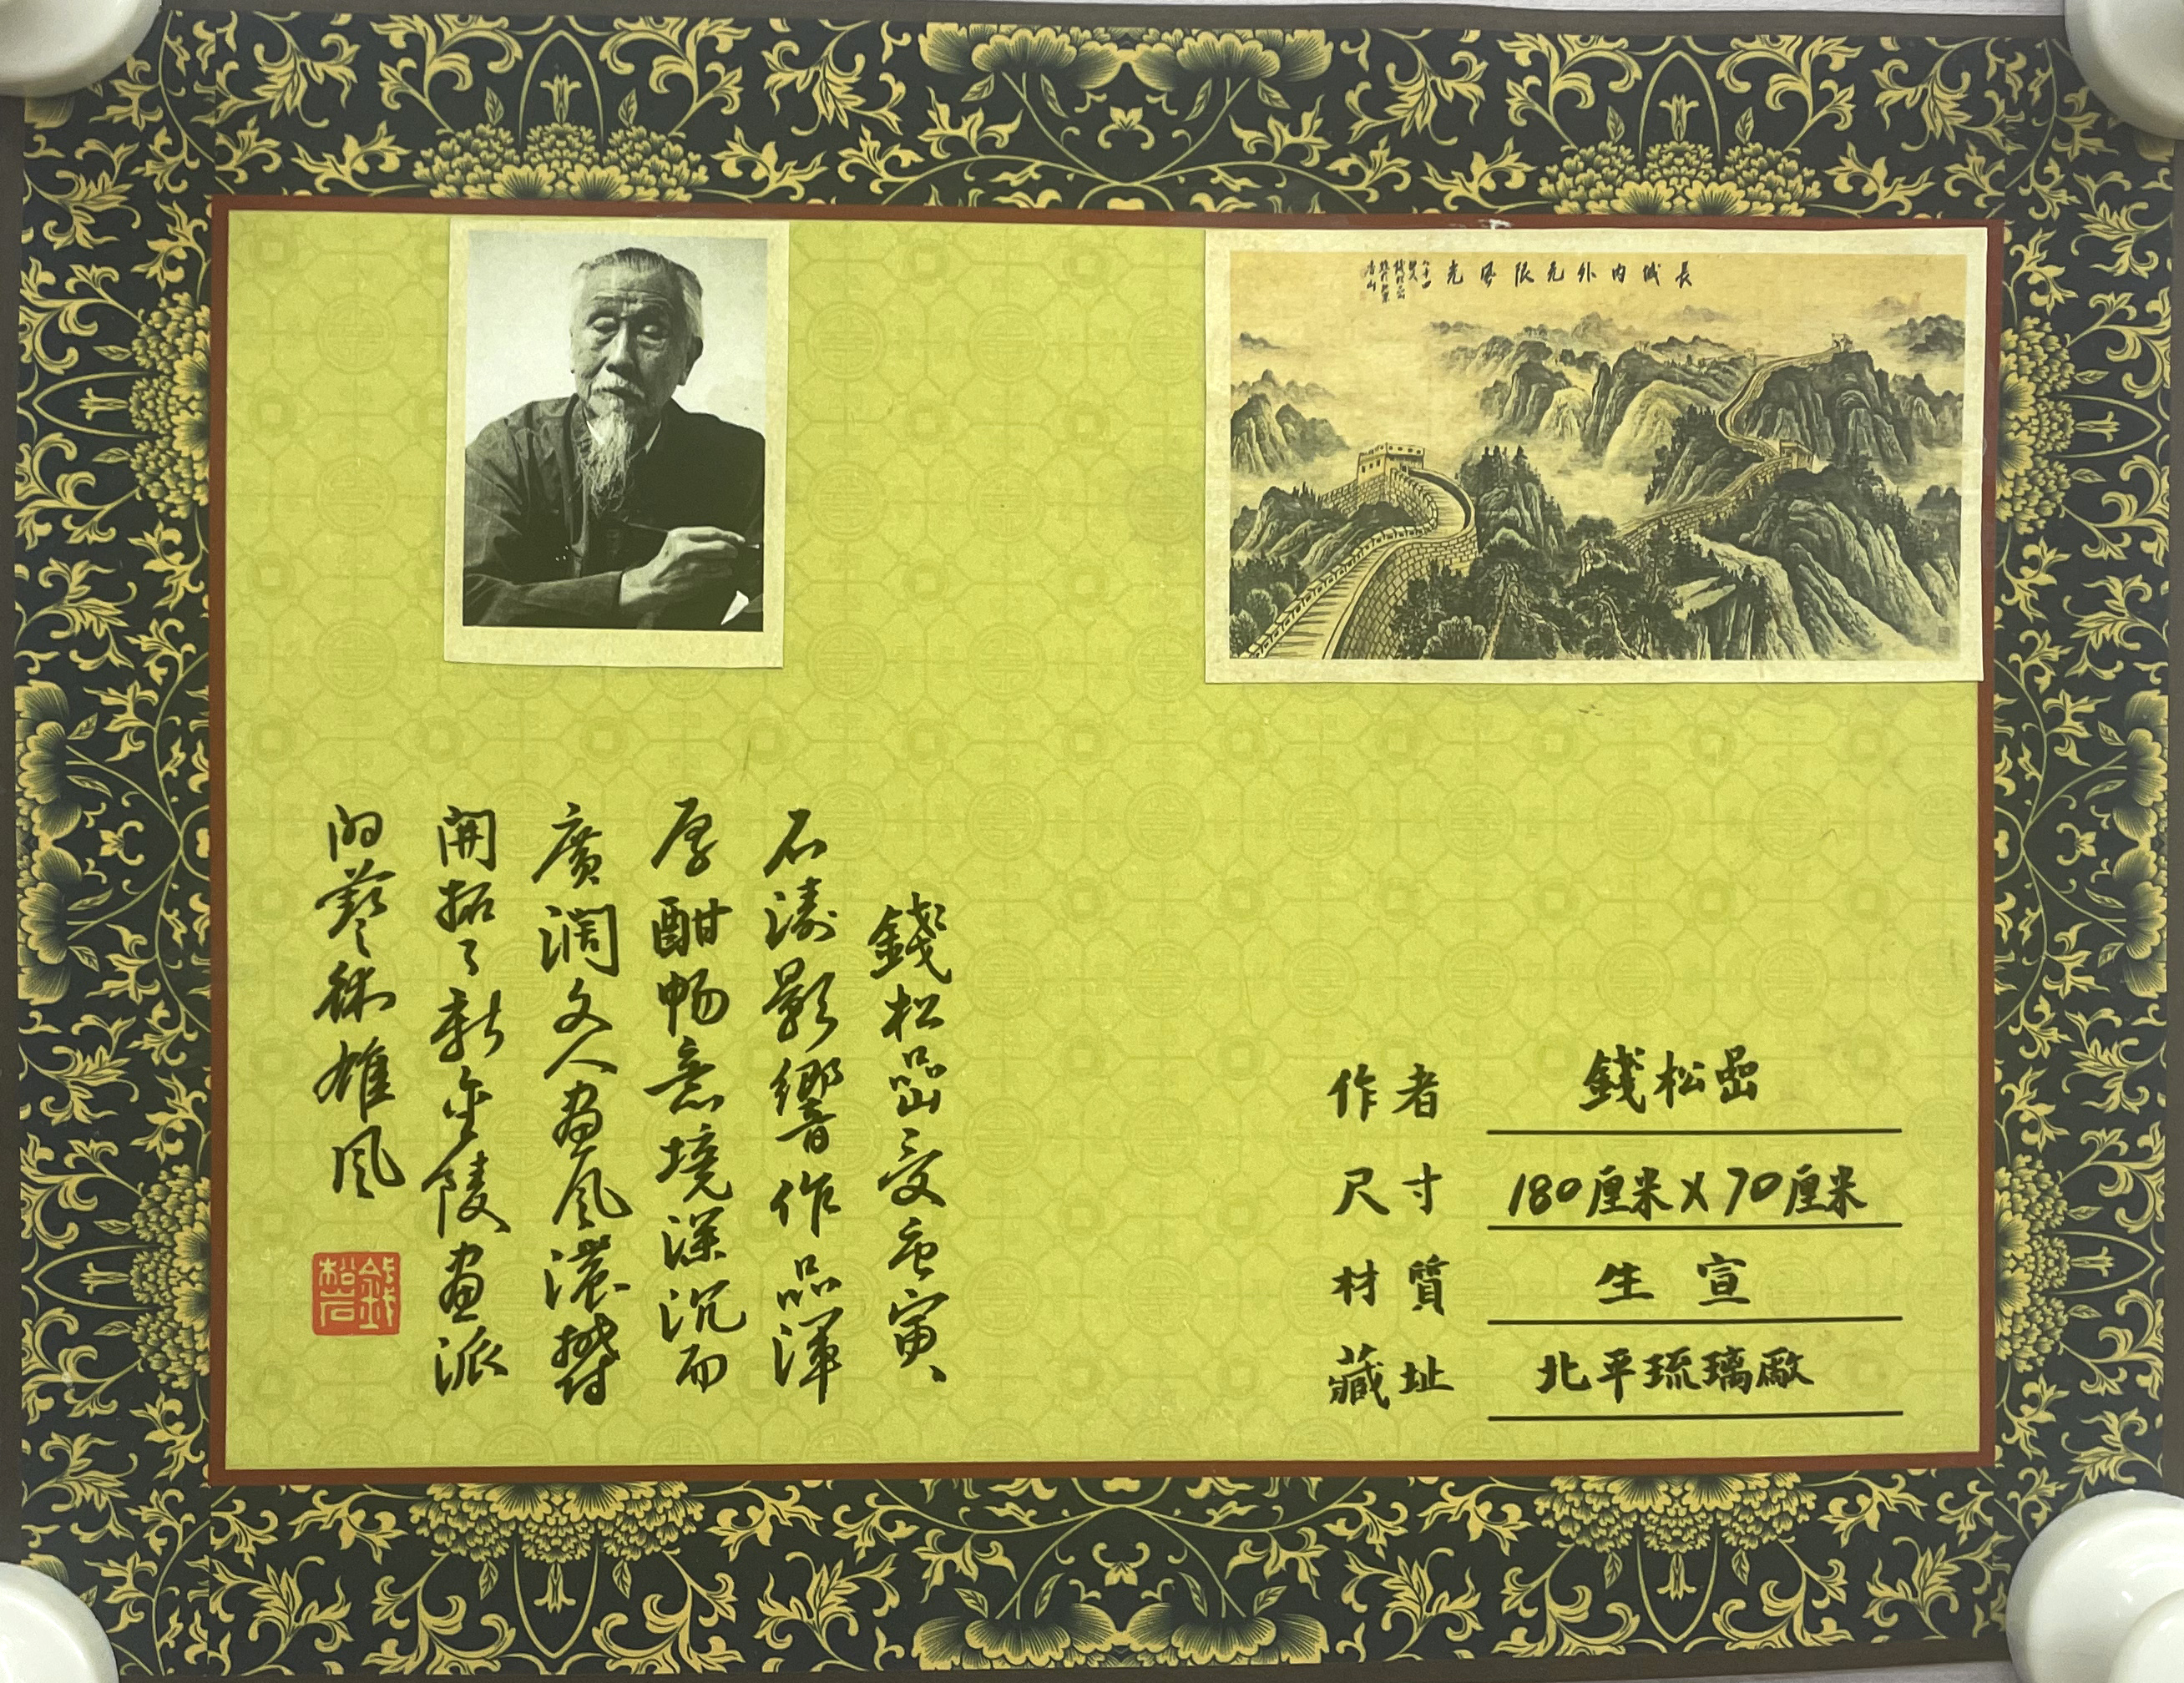 長城内外無限風光
錢松喦受唐寅
石濤影響作品渾
厚酣畅意境深沉而
廣濶文人畫风濃鬱
開拓了新金陵畫派
的藝術雄风
作者 錢松喦
尺寸 180厘米X70厘米
材質 生宣
藏址 北平琉璃廠